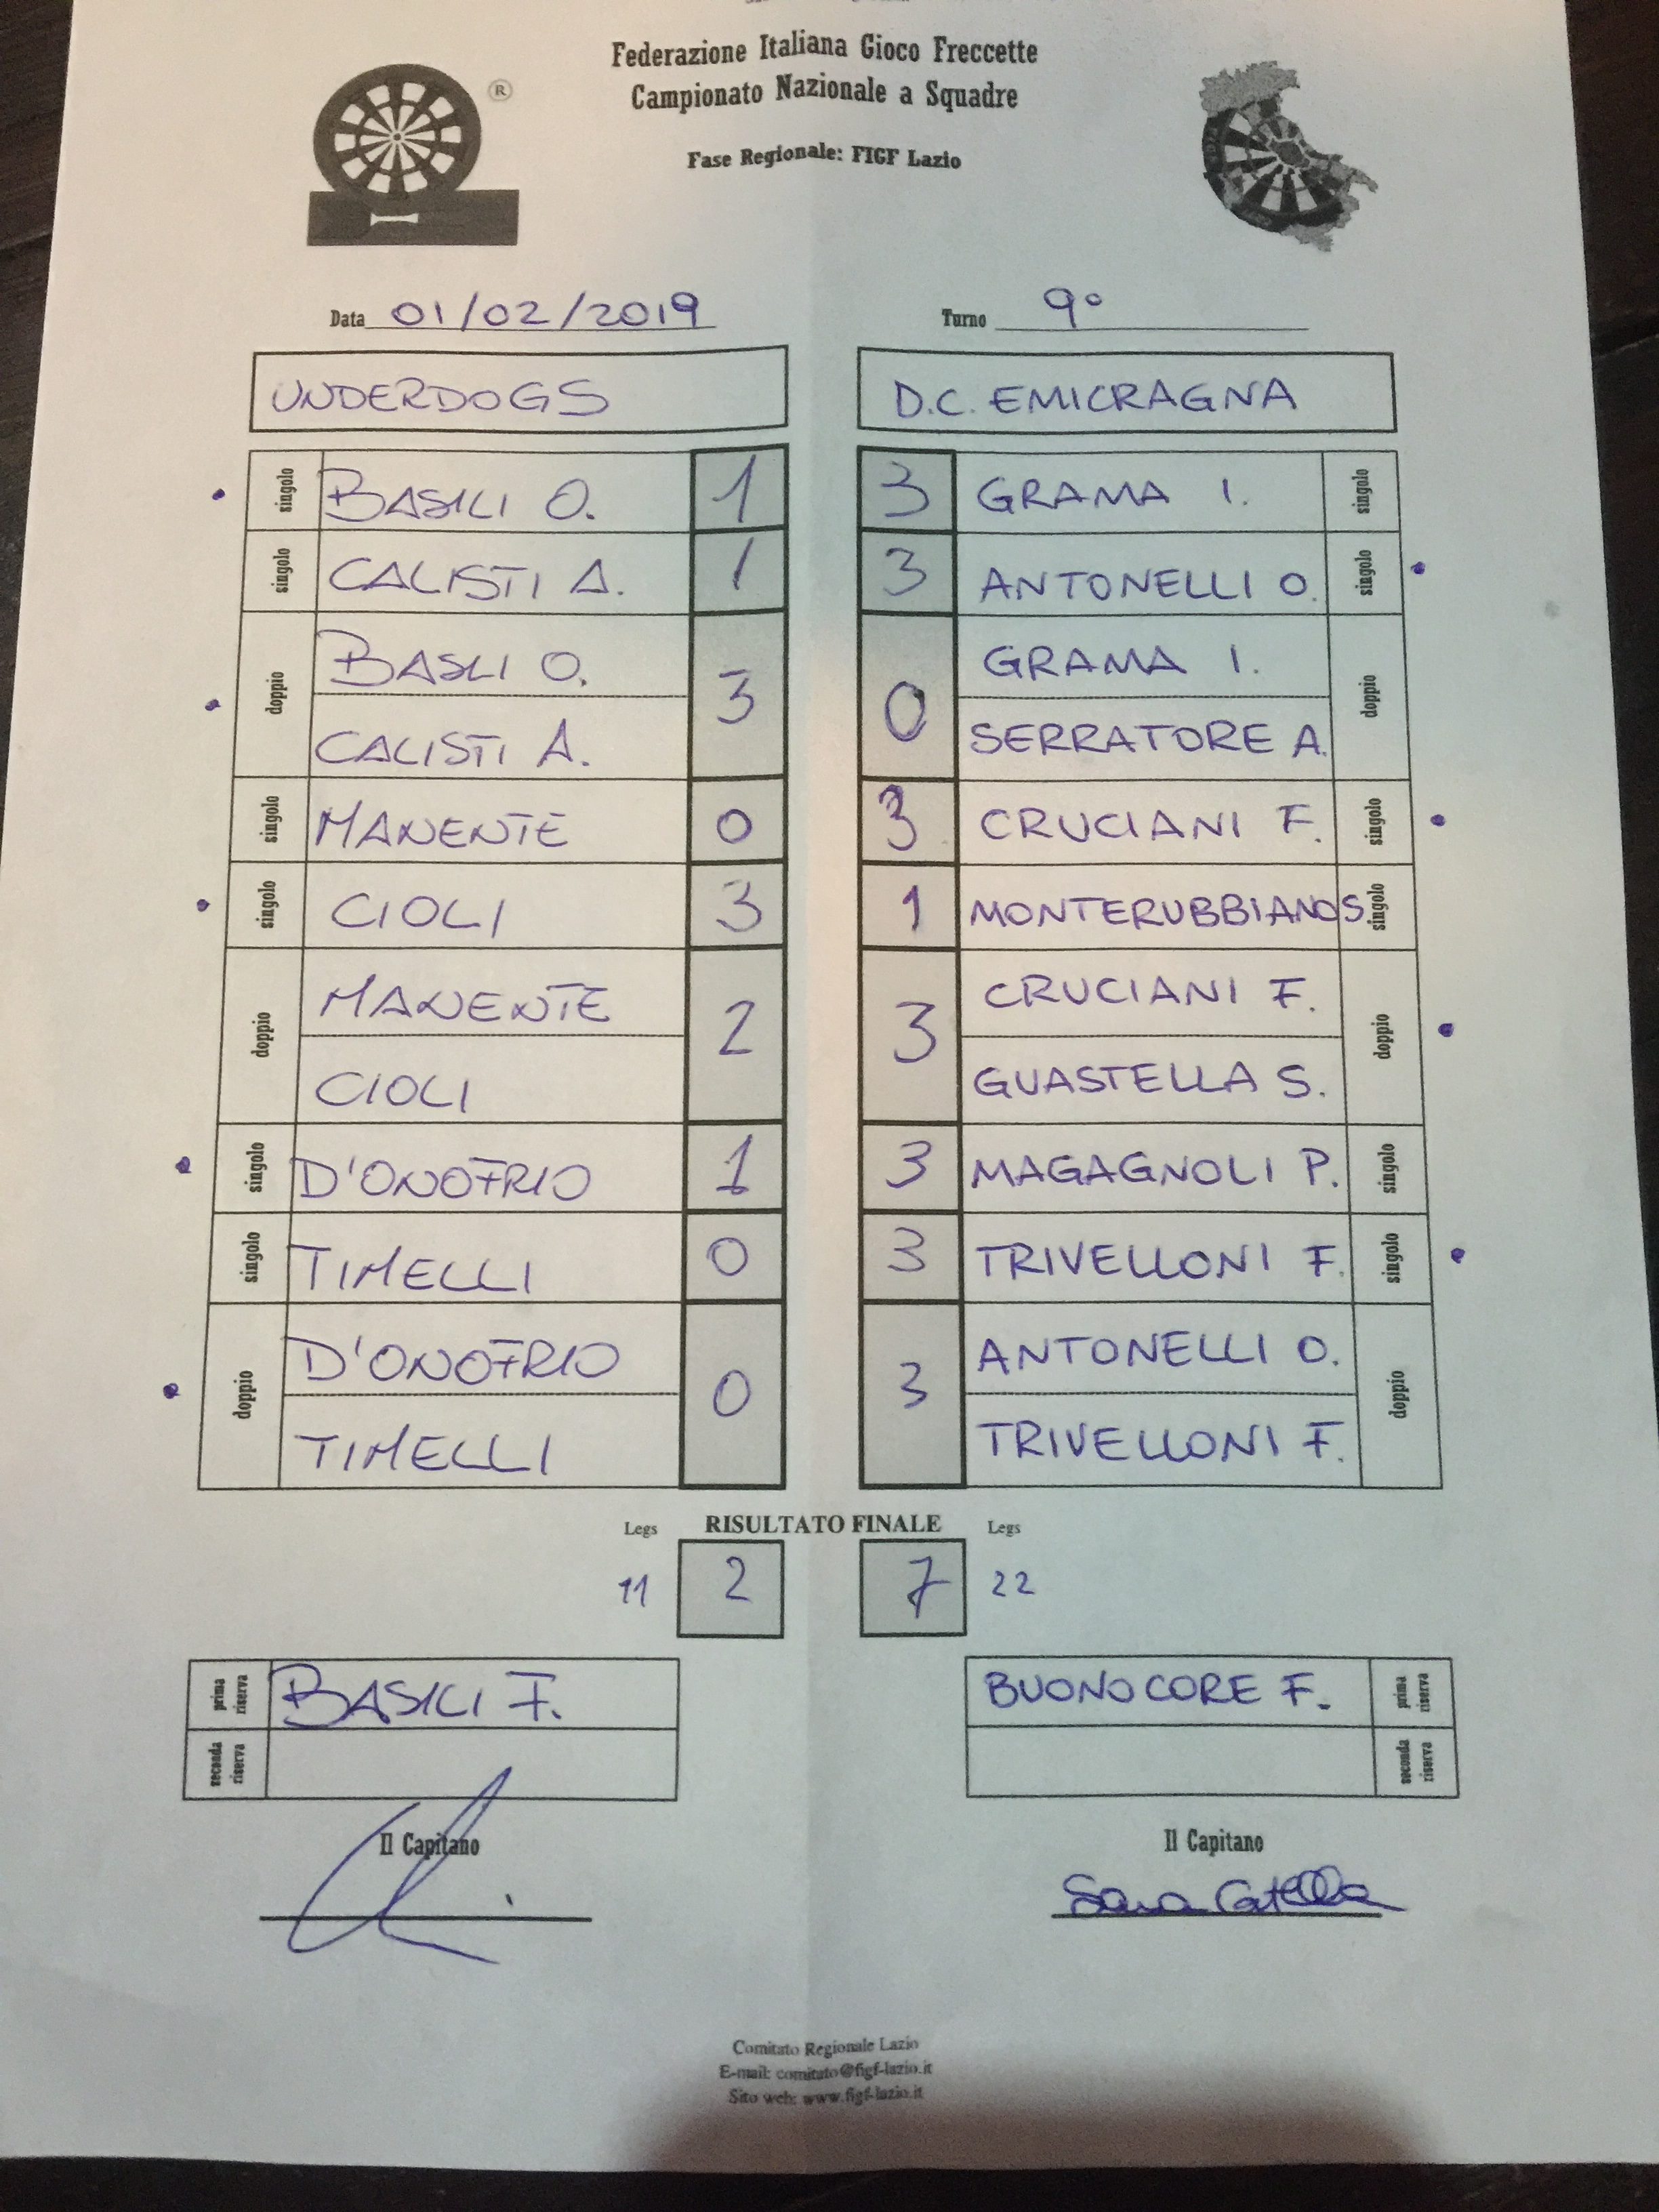 Federazione Italiana Gioco Freccette
Campionato Nazionale a Squadre
Fase Regionale: FIGF Lazio
®
Data 01/02/2019 Turno 9°
UNDERDOGS D.C. EMICRAGNA
singolo BASILI O. 1 3 GRAMA I. singolo
singolo CALISTI A. 1 3 ANTONELLI O. singolo
BASILI O. GRAMA I.
doppio 3 0 doppio
CALISTI A. SERRATORE A.
singolo MANENTE 0 3 CRUCIANI F. singolo
singolo CIOLI 3 1 MONTERUBBIANO S. singolo
MANENTE CRUCIANI F.
doppio 2 3 doppio
CIOLI GUASTELLA S.
singolo D'ONOFRIO 1 3 MAGAGNOLI P. singolo
singolo TIMELLI 0 3 TRIVELLONI F. singolo
D'ONOFRIO ANTONELLI O.
doppio 0 3 doppio
TIMELLI TRIVELLONI F.
Legs RISULTATO FINALE Legs
11 2 7 22
prima riserva BASILI F. BUONOCORE F. prima riserva
seconda riserva seconda riserva
Il Capitano Il Capitano
Comitato Regionale Lazio
E-mail: comitato@figf-lazio.it
Sito web: www.figf-lazio.it